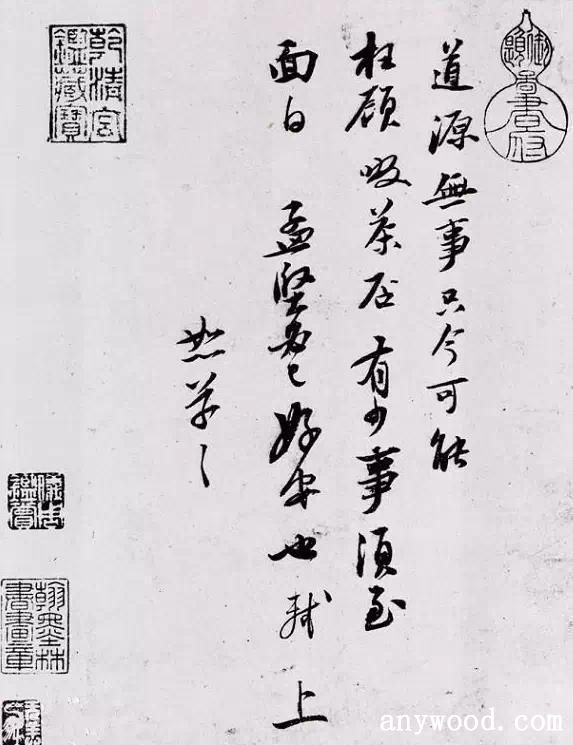 道源無事只今可能
枉顧啜茶否有少事須至
面白 孟堅必已好安也 軾上
恕草〻
乾清宮
鑑藏寶
鑑賞
翰墨林
書畫章
anywood.com